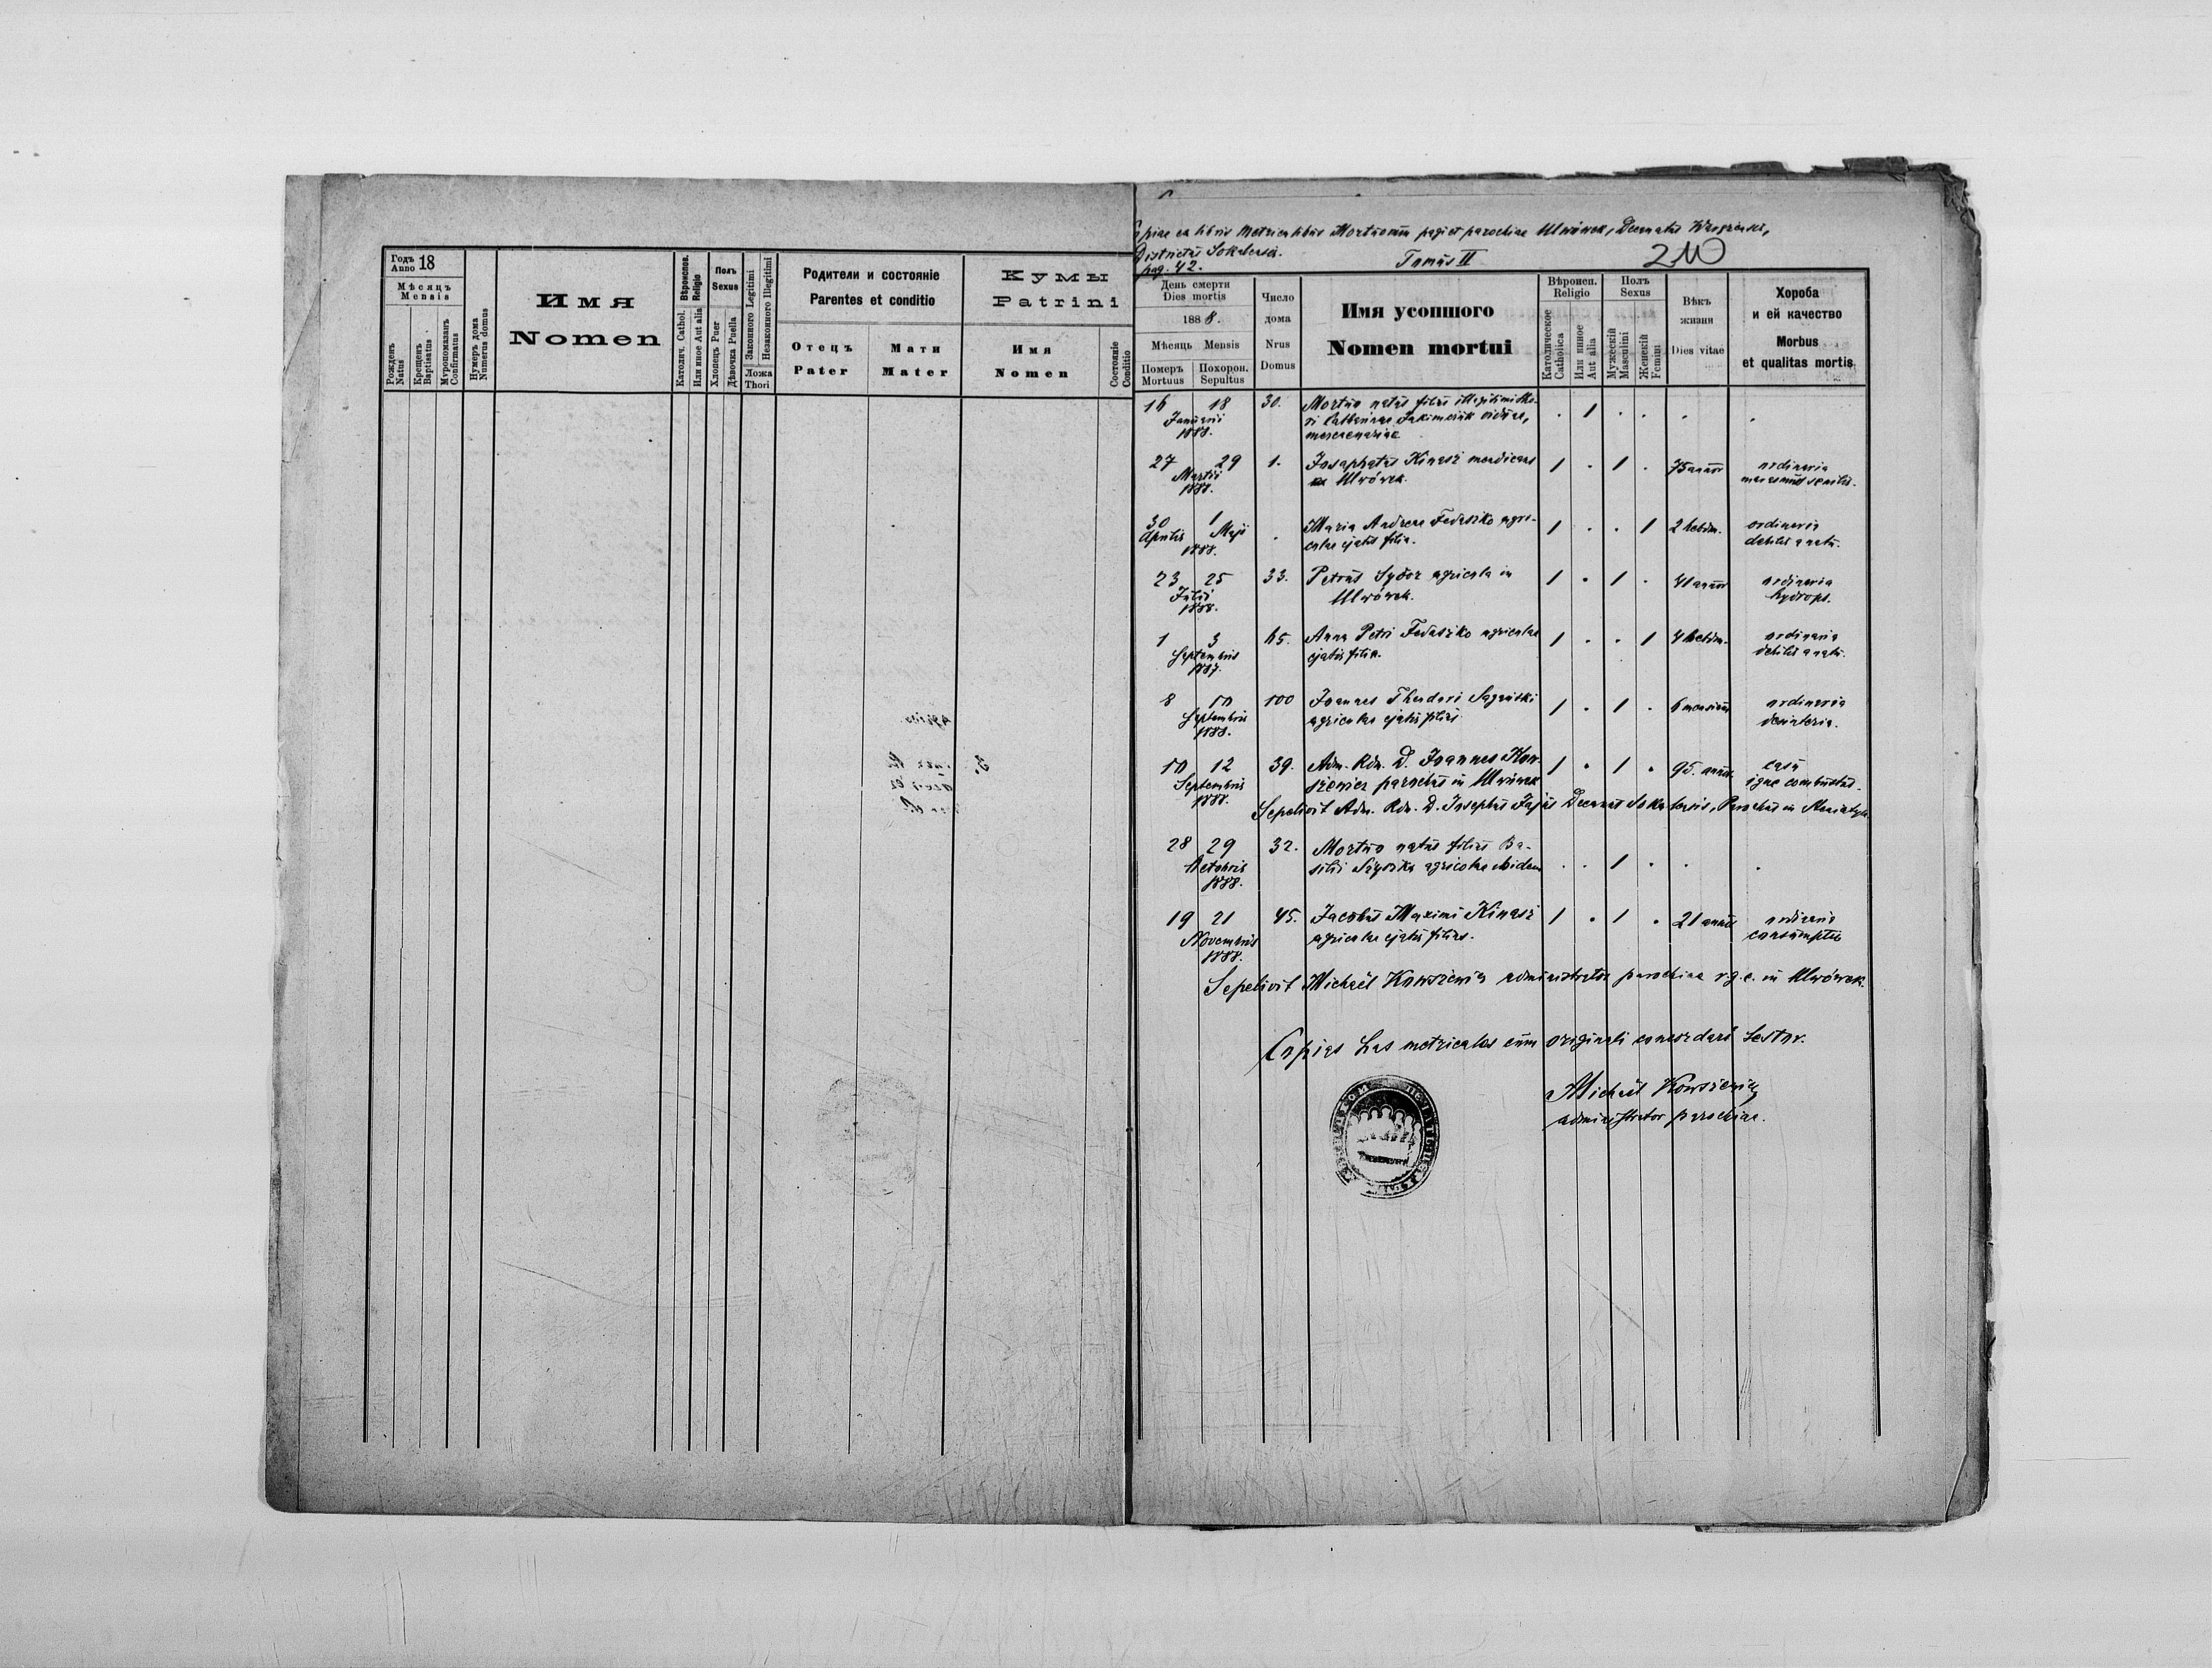 Годъ
Anno 18
Мѣсяцъ
Mensis
Рожденъ
Natus
Крещенъ
Baptisatus
Муропомазанъ
Confirmatus
Нумеръ дома
Numerus domus
Имя
Nomen
Вѣроиспов.
Religio
Католич. Cathol.
Или иное Aut alia
Полъ
Sexus
Хлопецъ Puer
Дѣвочка Puella
Законного Legitimi
Незаконного Illegitimi
Ложа
Thori
Родители и состоянiе
Parentes et conditio
Отецъ
Pater
Мати
Mater
Кумы
Patrini
Имя
Nomen
Состоянiе
Conditio
ex libris Metricalibus Mortuorum pagi et parochiae Ulwówek, Decanatus
Districtus Sokalensis.
pag. 42.
Tomus II
210
День смерти
Dies mortis
1888.
Мѣсяць Mensis
Померъ
Mortuus
Похорон.
Sepultus
Число
дома
Nrus
Domus
Имя усопшого
Nomen mortui
Вѣроисп.
Religio
Католическое
Catholica
Или иное
Aut alia
Полъ
Sexus
Мужескiй
Masculini
Женскiй
Femini
Вѣкъ
жизни
Dies vitae
Хороба
и ей качество
Morbus
et qualitas mortis
16 18 30. Mortuo natus filius illegitimi tho- . 1 . . . .
Januarii ri Catharinae Jakimczuk viduae,
1888. mercenariae
27 29 1. Josaphatus Kinasz mendicans 1 . 1 . 75 annor ordinaria
Martii Ulwówek. marasmus senilis.
1888.
30 1 . Maria Andreae Fedaszko agri- 1 . . 1 2 hebdm. ordinaria
Aprilis Maji colae ejatis filia. debilis a natu.
1888.
23 25 33. Petrus Sydor agricola in 1 . 1 . 41 annor ordinaria
Julii Ulwówek. hydrops.
1888.
1 3 65. Anna Petri Fedaszko agricolae 1 . . 1 4 hebdm. ordinaria
Septembris ejatis filia. debilis a natu.
1887.
8 10 100 Joannes Theodori Sagański 1 . 1 . 6 mensium ordinaria
Septembris agricolae ejatis filius
1888.
10 12 39. Adm. Rdn. D. Joannes Kow- 1 . 1 . 95. annor casu
Septembris szewicz parochus in Ulwówek igne combustus.
1888.
Sepelivit Adm. Rdn. D. Josephus Decanus Sokalensis, Parochus in
28 29 32. Mortuo natus filius Ba- . . 1 . . .
Octobris silii agricolae ibidem
1888.
19 21 45. Jacobus Maximi Kinasz 1 . 1 . 21 annor ordinaria
Novembris agricolae ejatis filius. consumptio
1888.
Sepelivit Michaël Kowszewicz administrator parochiae r.g.c. in Ulwówek.
Copias has metricales cum originali concordare testor.
Michaël Kowszewicz
administrator parochiae.